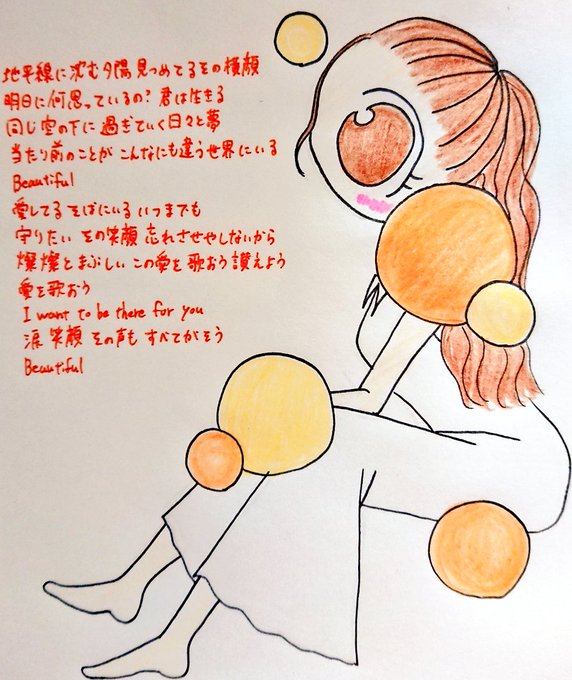 地平線に沈む夕陽 見つめてるその横顔
明日に何思っているの? 君は生きる
同じ空の下に 過ぎていく日々と夢
当たり前のことが こんなにも違う世界にいる
Beautiful
愛してる そばにいる いつまでも
守りたい その笑顔 忘れさせやしないから
燦燦と まぶしい この愛を 歌おう 讃えよう
愛を歌おう
I want to be there for you
涙 笑顔 その声も すべてがそう
Beautiful